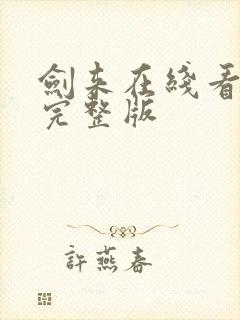 劍来在綫看
完整版
許燕春